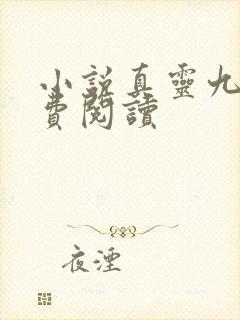 小說真靈九
費閱讀
夜湮